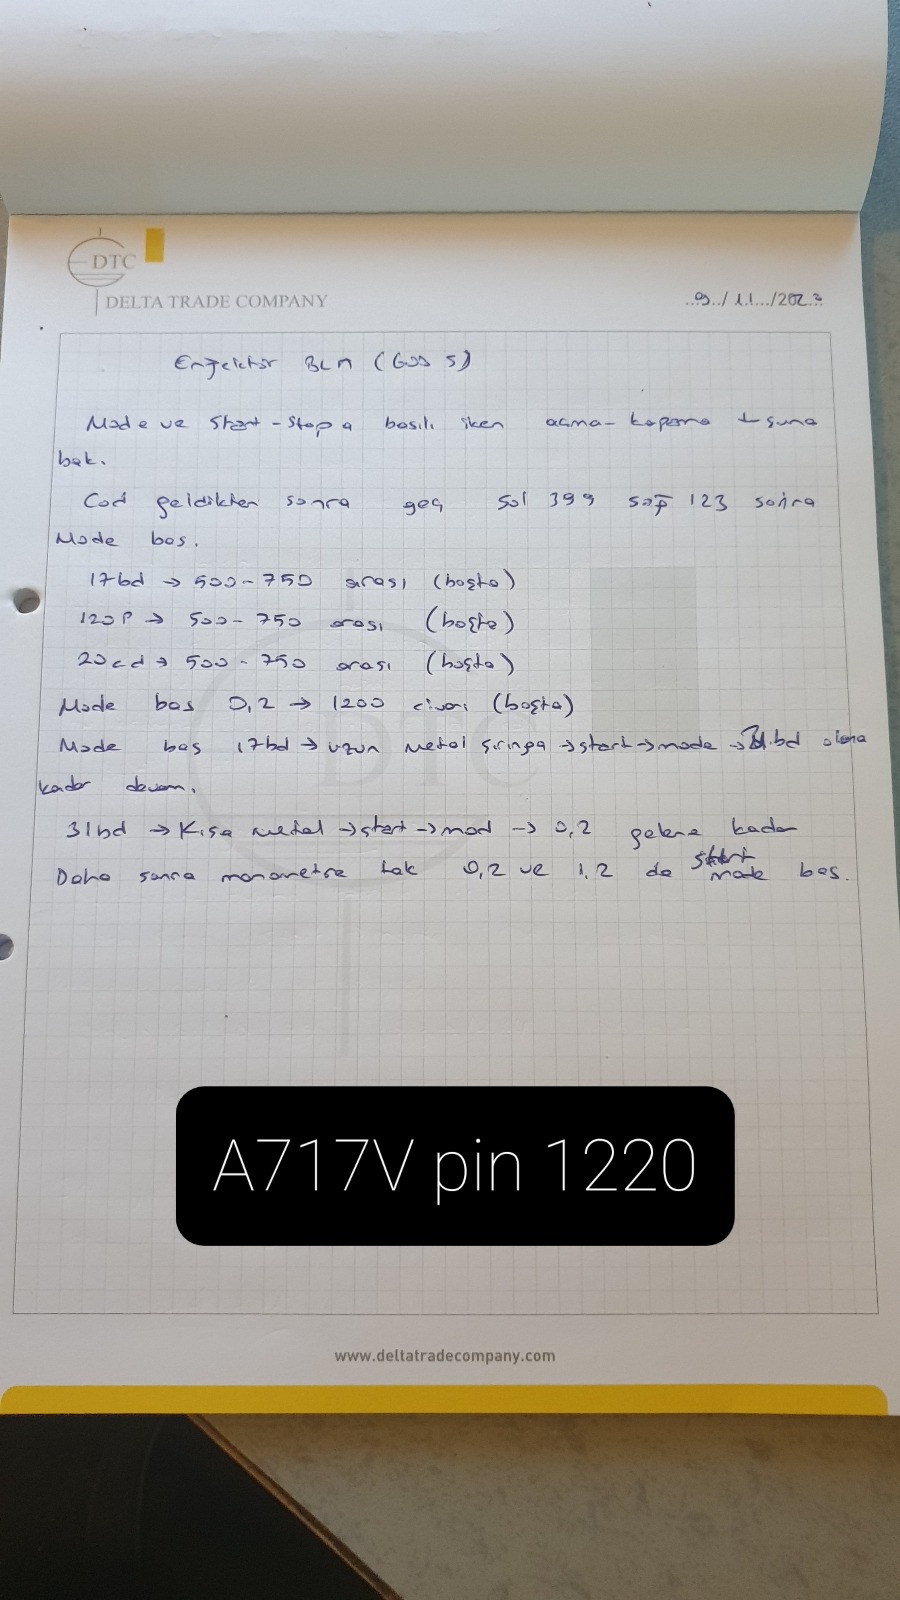 DTC
DELTA TRADE COMPANY
9/11/2023
Enjektör BLM (GDD 5)
Mode ve Start-Stop a basılı iken açma-kapama tuşuna
bak.
Cod geldikten sonra geç sol 399 sağ 123 sonra
Mode bas.
17bd → 500-750 arası (boşta)
120P → 500-750 arası (boşta)
20cd → 500-750 arası (boşta)
Mode bas 0,2 → 1200 civarı (boşta)
Mode bas 17bd → uzun metal şırınga → start → mode → 31bd olana
kadar devam.
31bd → Kısa metal → start → mod → 0,2 gelene kadar
Daha sonra manometre tak 0,2 ve 1,2 de start mode bas.
DTC
A717V pin 1220
www.deltatradecompany.com